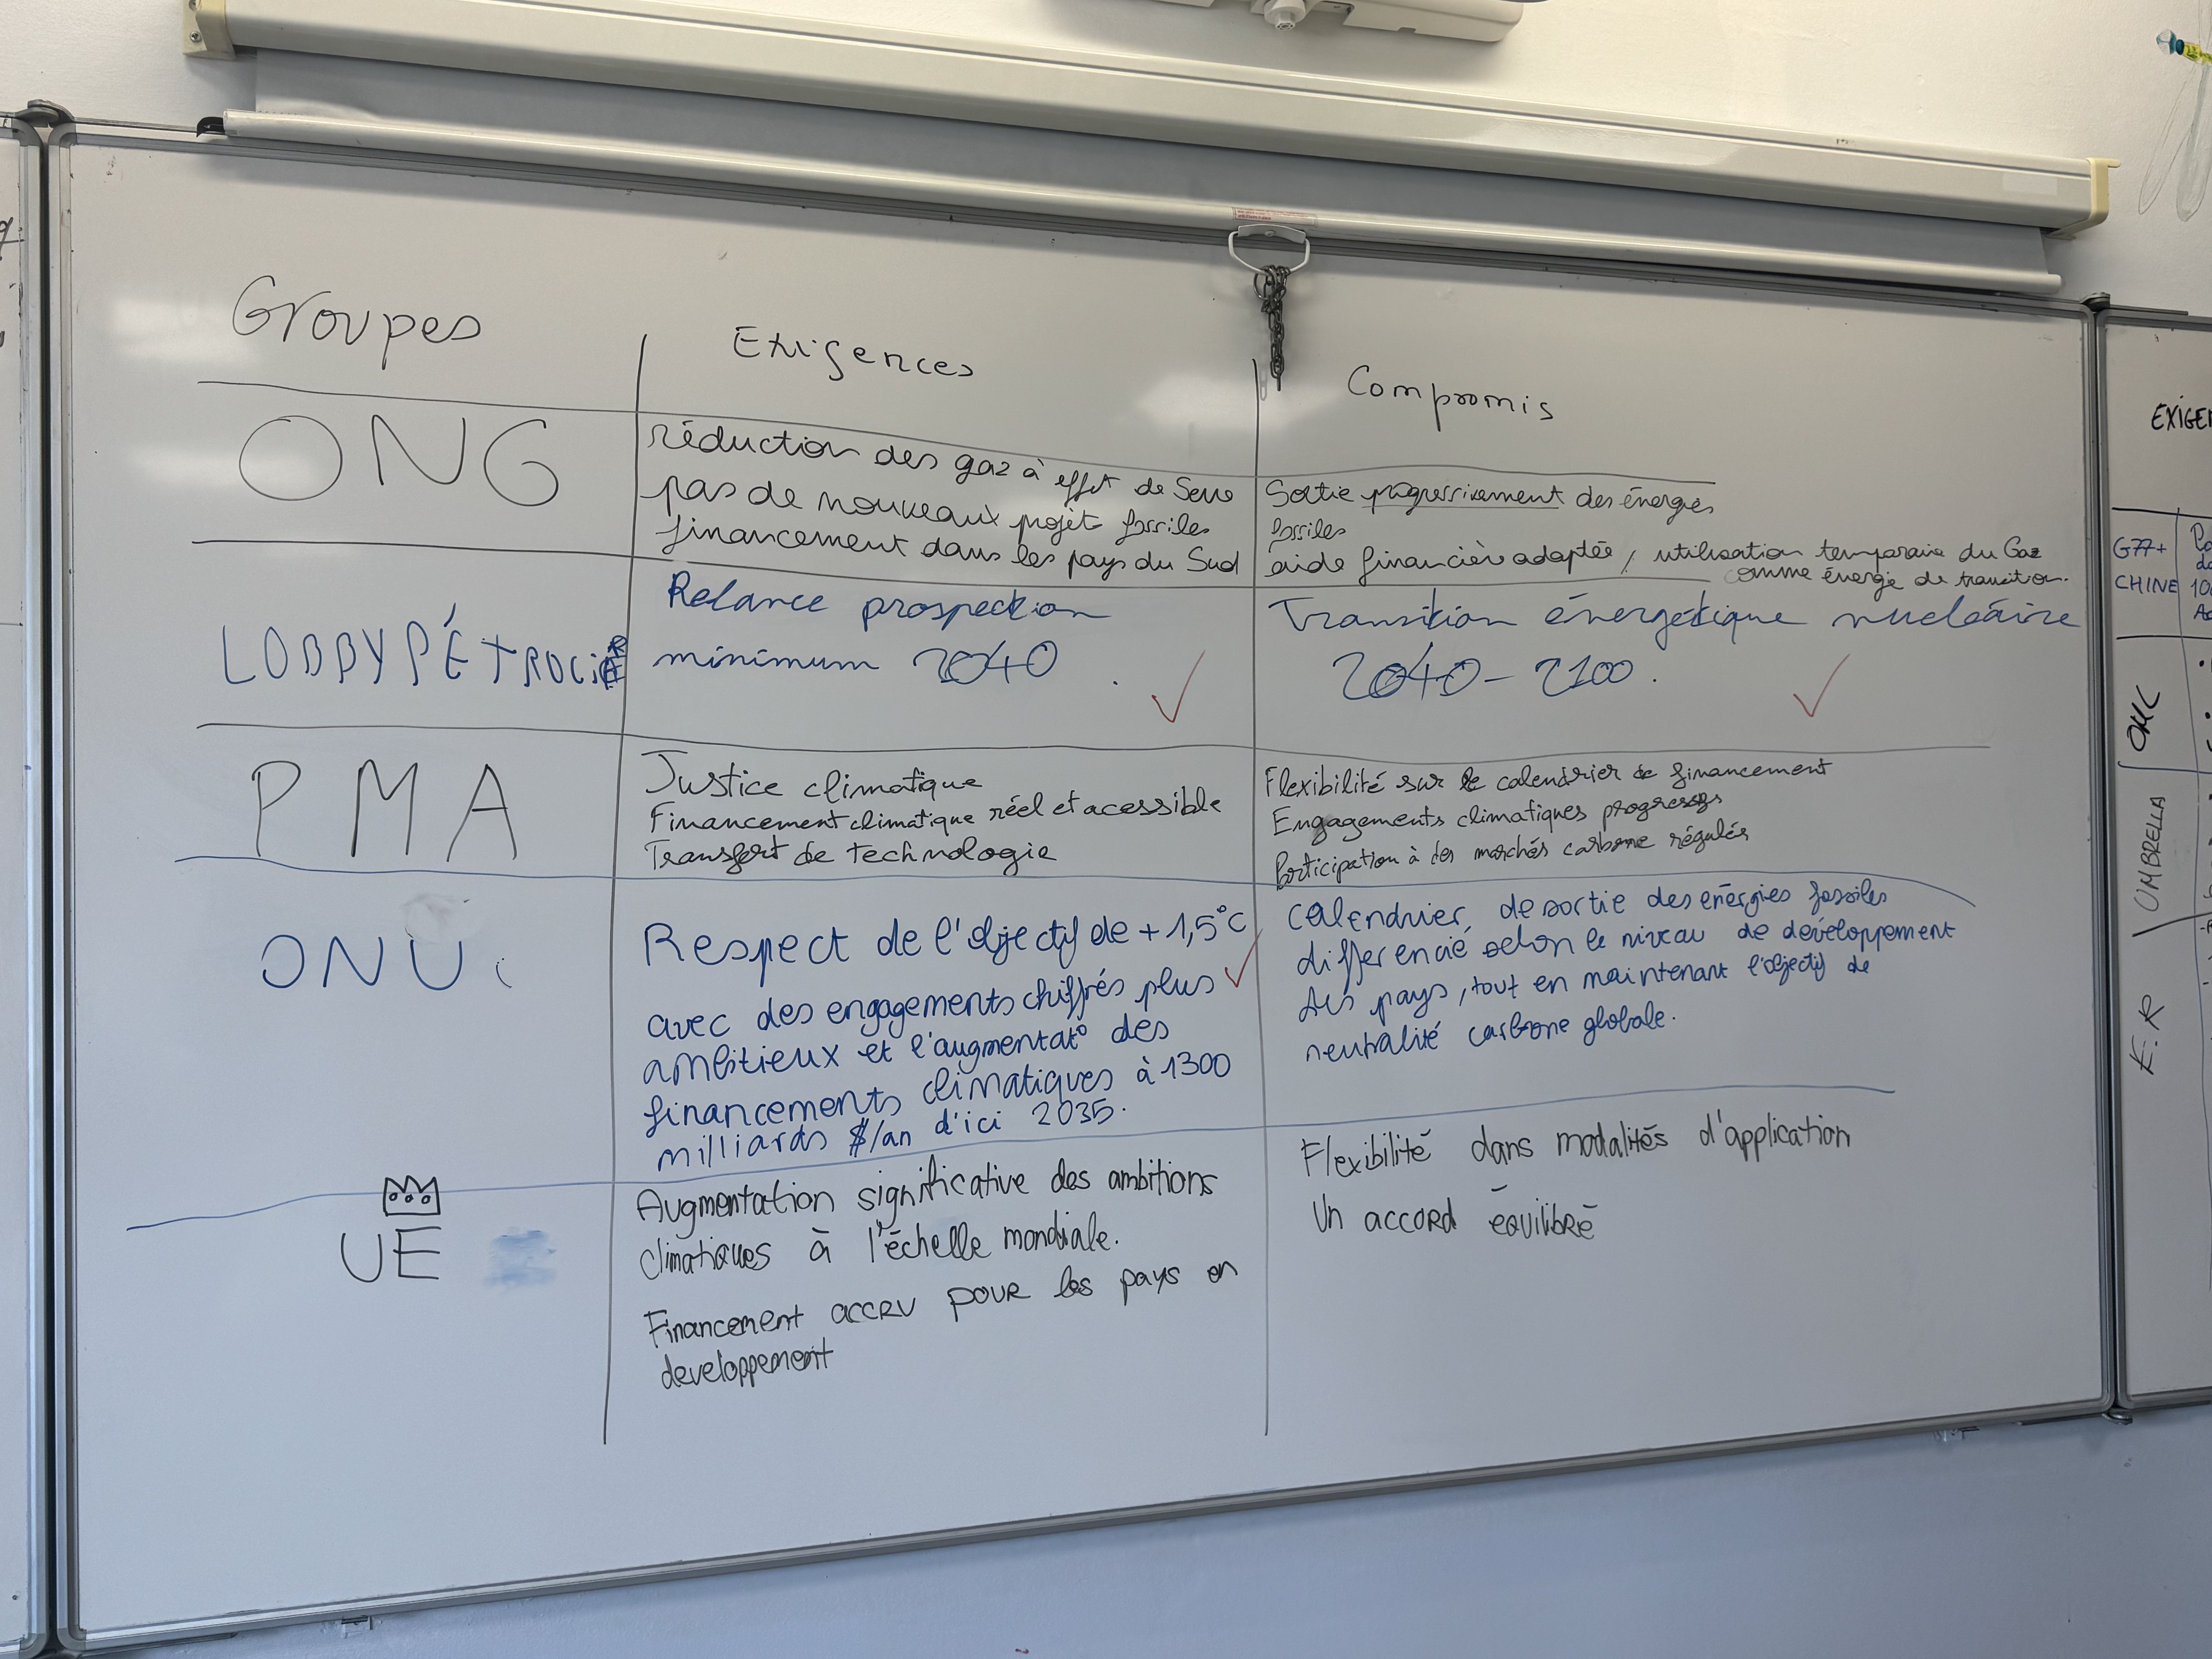 Groupes
Exigences
Compromis
ONG
réduction des gaz à effet de Serre
pas de nouveaux projet fossiles
financement dans les pays du Sud
Sortie progressivement des énergies
fossiles
aide financière adaptée, utilisation temporaire du Gaz
comme énergie de transition.
LOBBY PÉTROLIER
Relance prospection
minimum 2040
Transition énergétique nucléaire
2040-2100.
PMA
Justice climatique
Financement climatique réel et acessible
Transfert de technologie
Flexibilité sur le calendrier de financement
Engagements climatiques progressifs
Participation à des marchés carbone régulés
ONU
Respect de l'objectif de +1,5°C
avec des engagements chiffrés plus
ambitieux et l'augmentat° des
financements climatiques à 1300
milliards $/an d'ici 2035.
calendrier de sortie des énergies fossiles
differencié selon le niveau de développement
des pays, tout en maintenant l'objectif de
neutralité carbone globale.
UE
Augmentation significative des ambitions
climatiques à l'échelle mondiale.
Financement accru pour les pays en
developpement
Flexibilité dans modalités d'application
Un accord équilibré
EXIGEN
G77+
CHINE
OMC
UMBRELLA
E.R